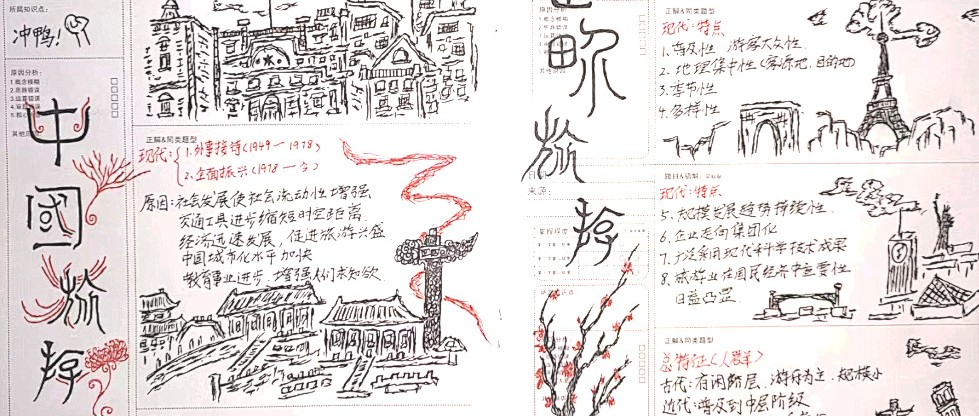 所属知识点：
冲鸭！
原因分析：
1.概念模糊
2.思路错误
3.运算错误
其他原
中國旅游
正解&同类题型
现代：
1.外事接待（1949－1978）
2.全面振兴（1978－今）
原因：社会发展使社会流动性增强
交通工具进步缩短时空距离
经济迅速发展，促进旅游兴盛
中国城市化水平加快
教育事业进步，增强人们求知欲
原因分析
1.概念模糊
略旅游
来源：
掌握程度
正解&同类题型
现代：特点
1.普及性 游客大众性
2.地理集中性（客源地、目的地）
3.季节性
4.多样性
题目&错解：
现代：特点
5.规模发展趋势持续性
6.企业走向集团化
7.广泛采用现代科学技术成果
8.旅游业在国民经济中重要性
日益凸显
正解&同类题型
总特征
古代：有闲阶层、游行为主、规模小
近代：普及到中层阶级